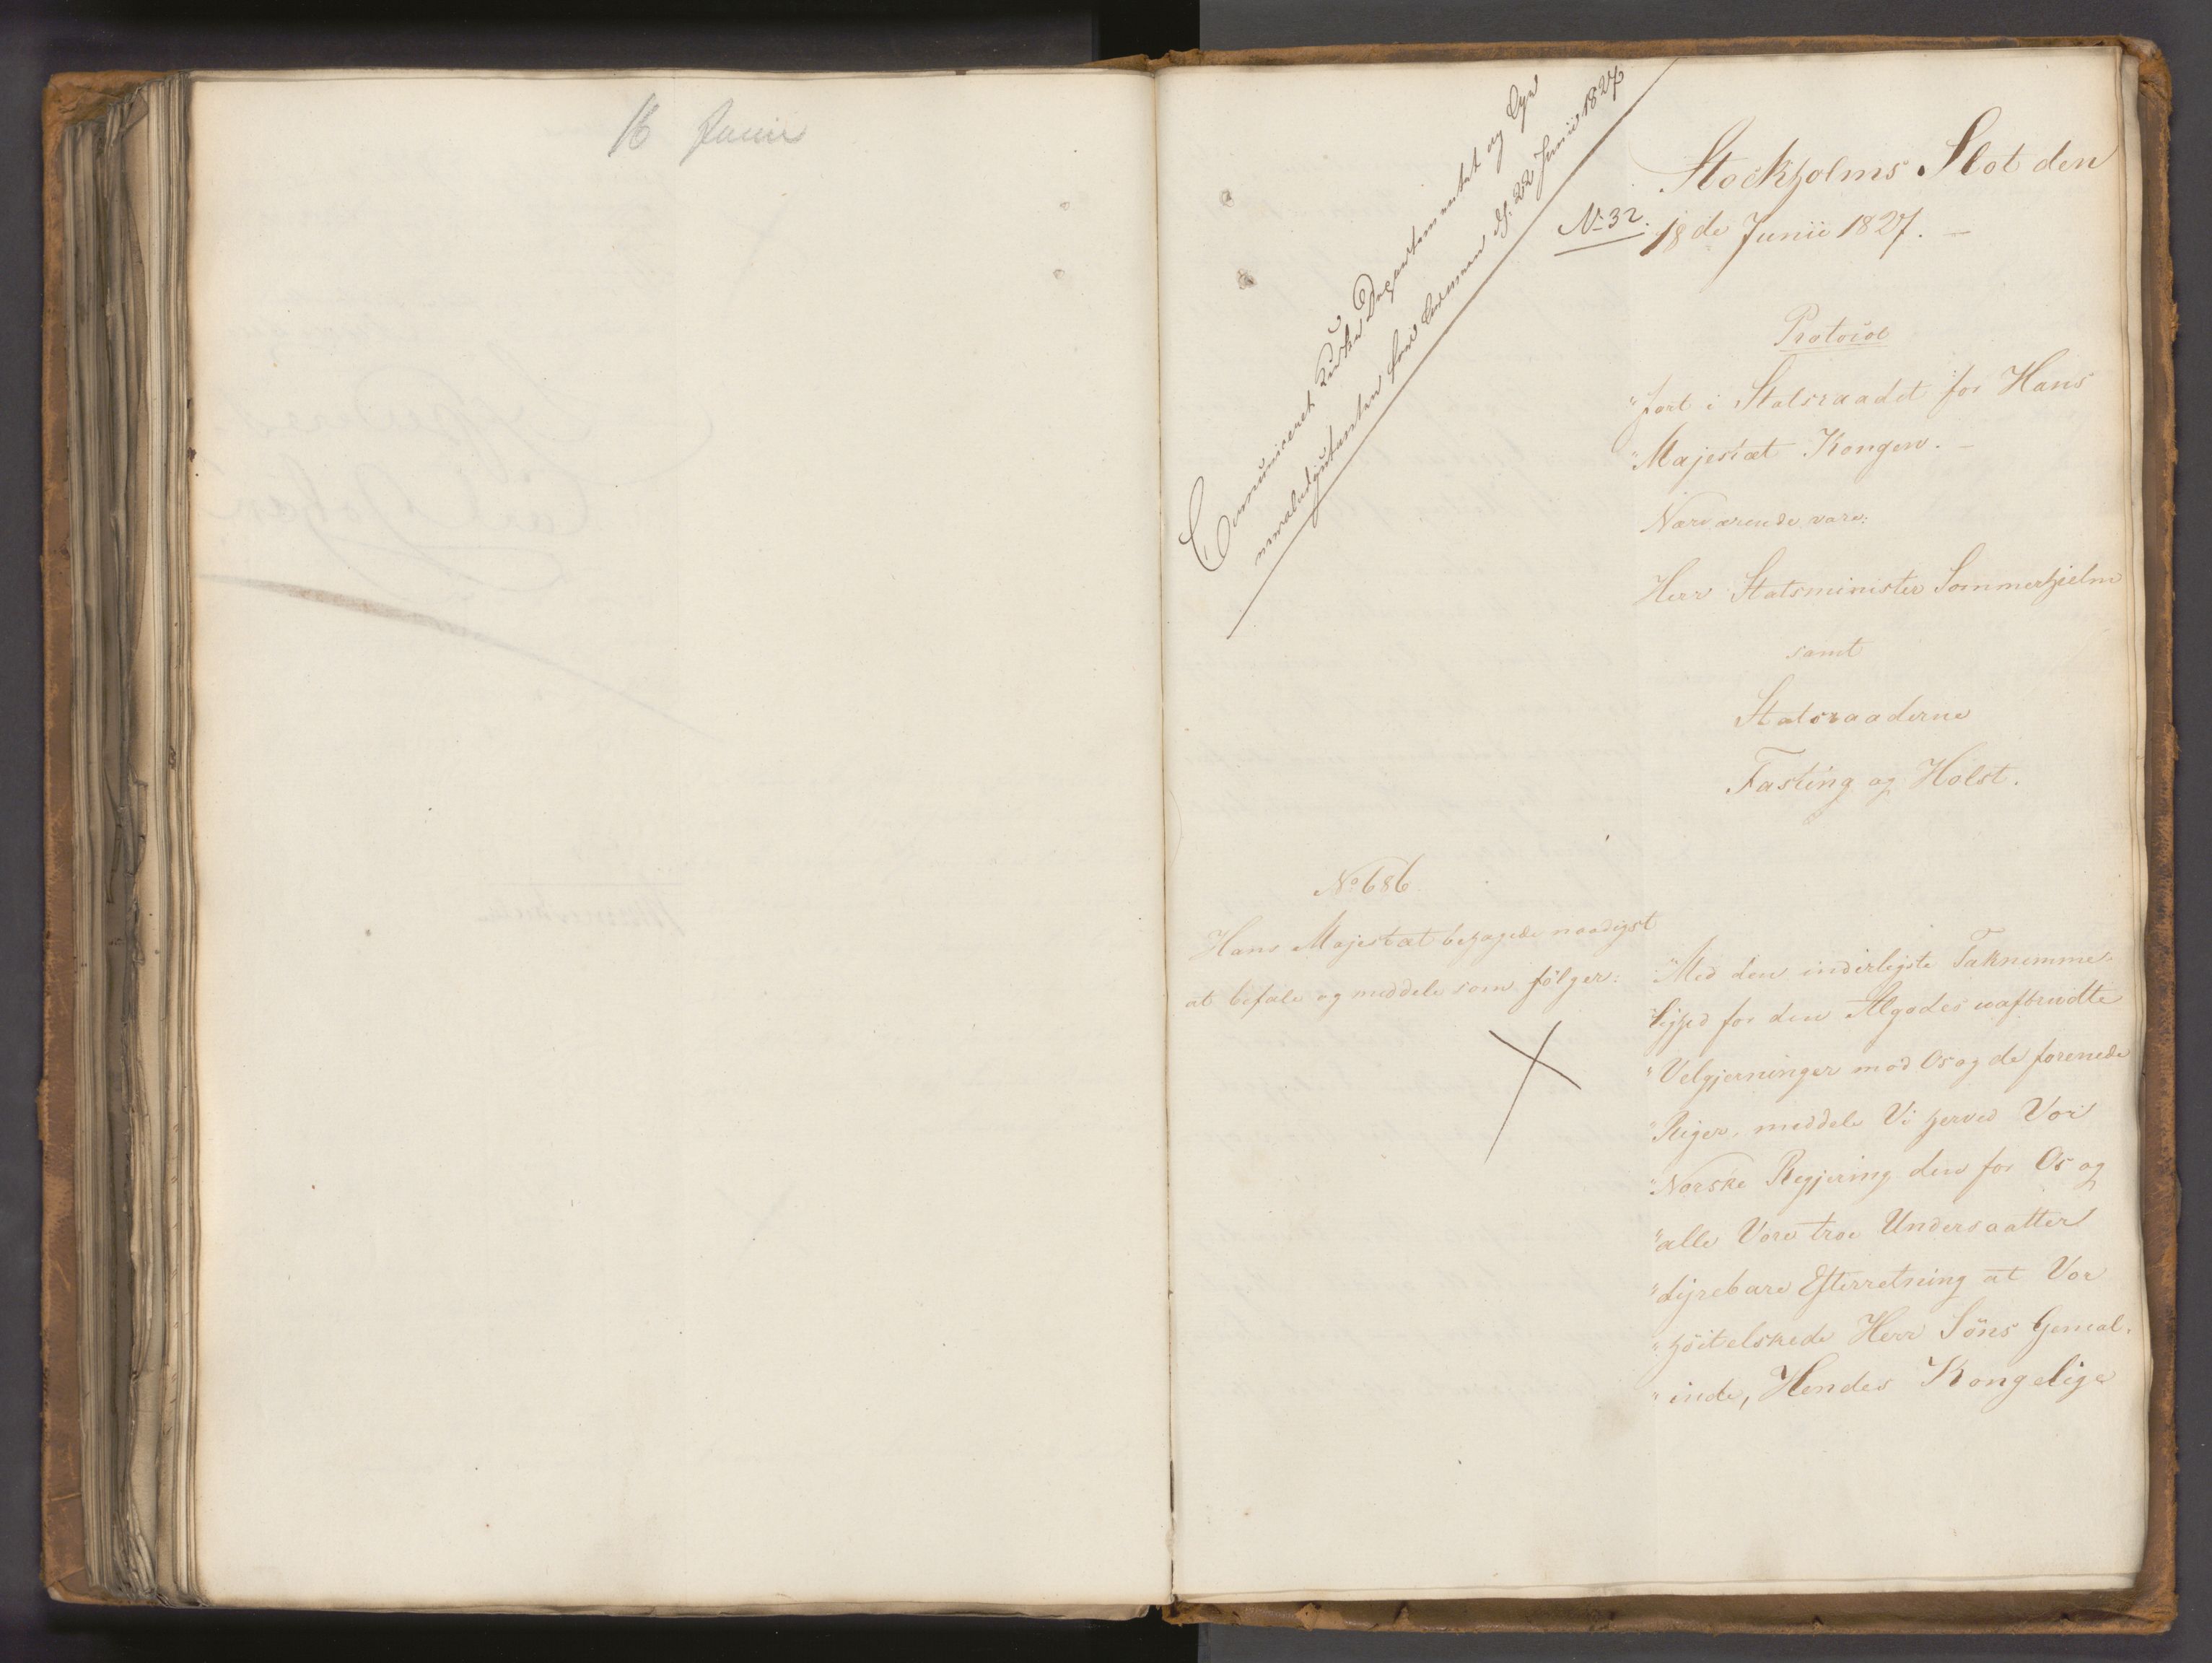 16 Junii
Communiceret Kirke Departementet og Ge
neraladjutanten for Armeen d. 22 Junii 1827
No 32.
Stockholms Slot den
18de Junii 1827. –
Protocol
"ført i Statsraadet for Hans
"Majestæt Kongen. –
Nærværende vare:
Herr Statsminister Sommerhjelm
samt
Statsraaderne
Fasting og Holst.
No 686
Hans Majestæt behagede naadigst
at befale og meddele som følger:
"Med den inderligste Taknemme-
"lighed for den Algodes uafbrudte
"Velgjerninger mod Os og de forenede
"Riger, meddele Vi herved Vor
"Norske Regjering den for Os og
"alle Vore troe Undersaatter
"dyrebare Efterretning at Vor
"høitelskede Herr Søns Gemal-
"inde, Hendes Kongelige